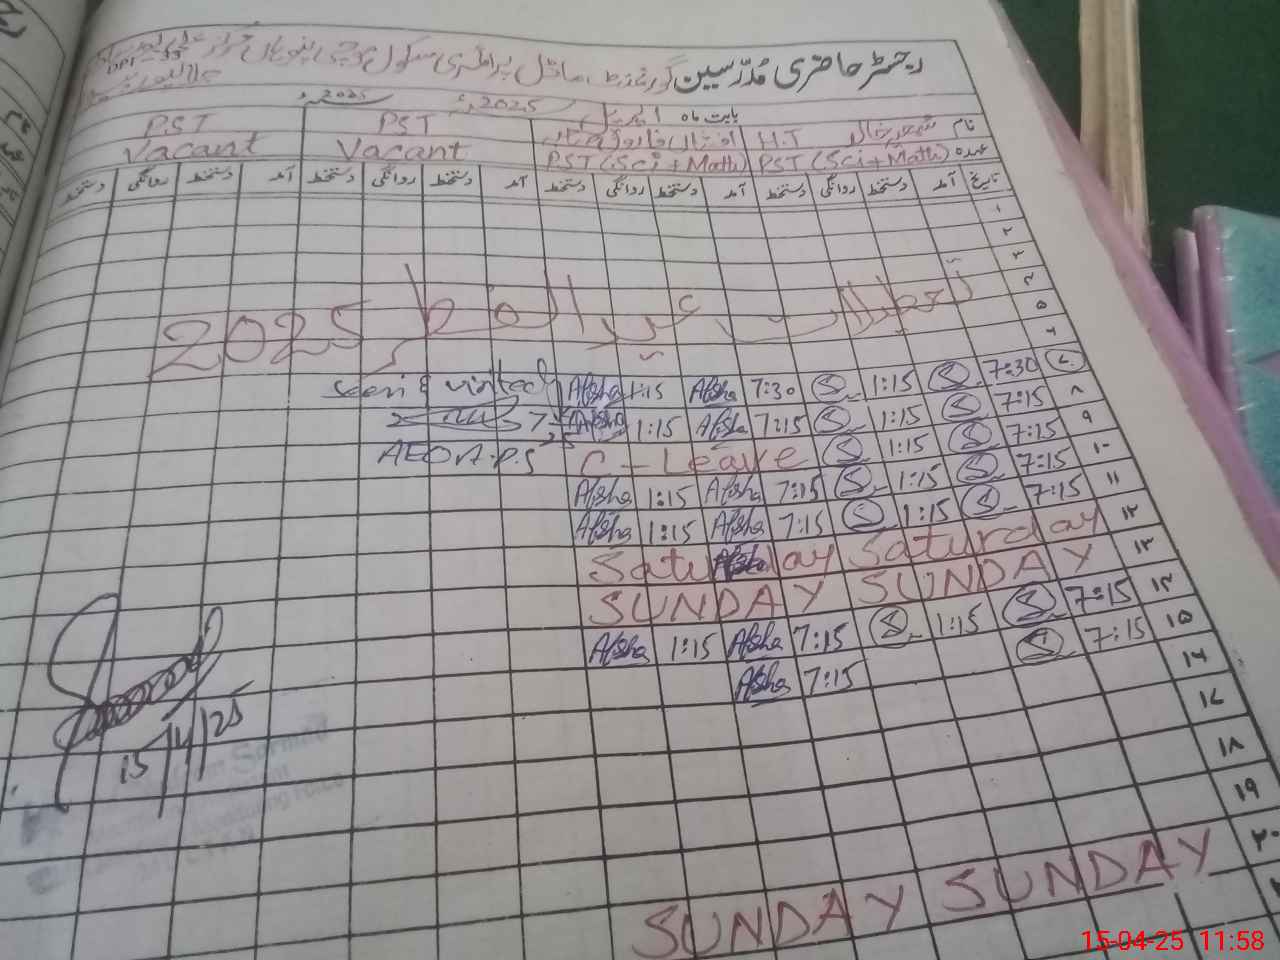 رجسٹر حاضری مُدرّسین گورنمنٹ ماڈل پرائمری سکول
بابت ماہ اپریل 2025ء 2025ء
نام H.T PST PST
عہدہ PST (Sci+Math) PST (Sci+Math) Vacant Vacant
تاریخ آمد دستخط روانگی دستخط آمد دستخط روانگی دستخط آمد دستخط روانگی دستخط آمد دستخط روانگی دستخط
۱
۲
۳
۴
۵
۶
تعطیلات عید الفطر 2025
۷ 7:30 S 1:15 S 7:30 Afsha 1:15 Afsha seen & visited
۸ 7:15 S 1:15 S 7:15 Afsha 1:15 Afsha
۹ 7:15 S 1:15 S C-Leave AEO
۱۰ 7:15 S 1:15 S 7:15 Afsha 1:15 Afsha
۱۱ 7:15 S 1:15 S 7:15 Afsha 1:15 Afsha
۱۲ Saturday Saturday
۱۳ SUNDAY SUNDAY
۱۴ 7:15 S 1:15 S 7:15 Afsha 1:15 Afsha
۱۵ 7:15 S 7:15 Afsha
۱۶
۱۷
۱۸
۱۹
۲۰ SUNDAY SUNDAY
15/4/25
15-04-25 11:58